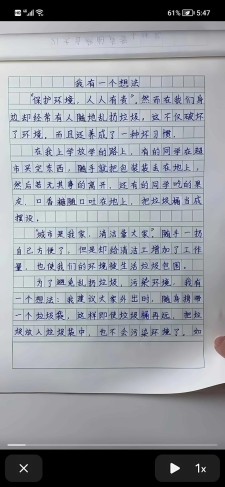 61% 5:47
我有一个想法
“保护环境,人人有责”,然而在我们身
边却经常有人随地乱扔垃圾,这不仅破坏
了环境,而且还养成了一种坏习惯。
在我上学放学的路上,有的同学在超
市买完东西,随手就把包装袋丢在地上,
然后若无其事的离开,还有的同学吃的果
皮,口香糖随口吐在地上,把垃圾桶当成
摆设。
“城市是我家,清洁靠大家”随手一扔
自己方便了,但是却给清洁工增加了工作
量,也使我们的环境被生活垃圾包围。
为了避免乱扔垃圾,污染环境,我有
一个想法:我建议大家外出时,随身携带
一个垃圾袋,这样即使垃圾桶再远,把垃
圾放入垃圾袋中,也不会污染环境了。如
1x